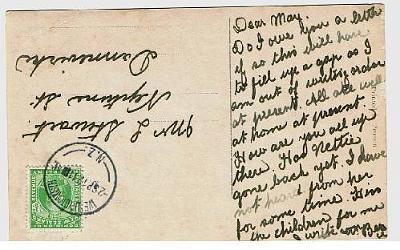 Dear May.
Do I owe you a letter
if so this will have
to fill up a gap as I
am out of writing order
at present. All are well
at home at present.
How are you all up
there Has Nettie
gone back yet. I have
not heard from her
for some time. Kiss
the children for me
I
Mr L Stewart.
Neptune St.
Dannevirke
N.Z.